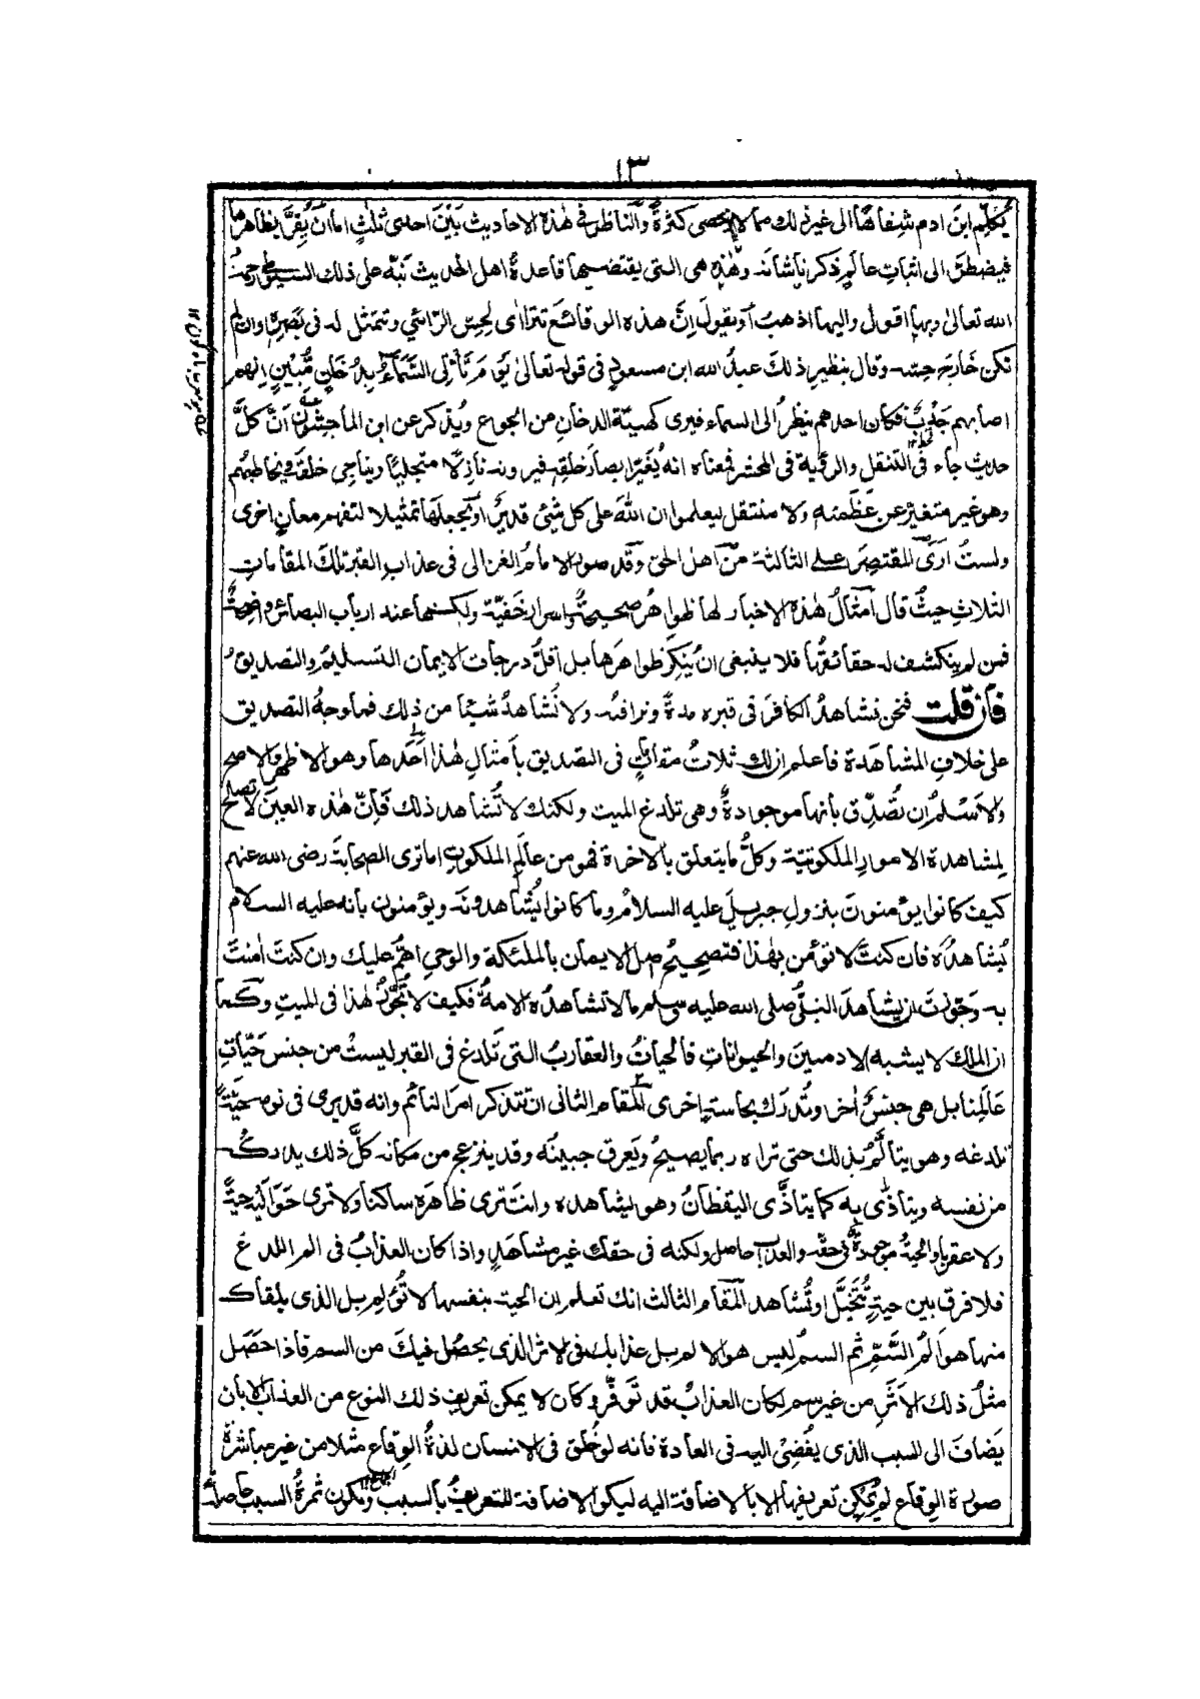 ١٣
يكلم ابن ادم شفاهًا الى غير ذلك مما لا يحصى كثرةً والناظر فى هٰذه الاحاديث بَيْنَ احدى ثلٰثٍ اما اَنْ يُقِرَّ بظاهرها
فيضطرَّ الى اثباتِ عالمٍ ذكرنا شانَه وهٰذِه هى التى يقتضيها قاعدةُ اهل الحديث نَبَّه على ذلك السيوطى رحمهُ
الله تعالىٰ وبها اقول واليها اذهبُ اَو يقولَ اِنَّ هذه الوقائع تتراأى لِحِسّ الرّائي وتتمثل له فى بَصَرِه وان لم
تكن خارجَ حِسّه وقال بنظيرِ ذلكَ عبدُ الله ابن مسعودٍ فى قوله تعالىٰ يَوْمَ تَأْتِى السَّمَاءُ بِدُخَانٍ مُّبِينٍ اِنهم
اصابهم جَدْبٌ فكان احدهم ينظرُ الى السماء فيرى كهيئة الدخانِ من الجوع ويُذكر عن ابن الماجشُون اَنَّ كلَّ
حديث جاء فى التنقل والرؤية فى المحشر فمعناه انه يُغَيِّرُ ابصارَ خلقِه فيرونه نازلًا متجليًا ويناجى خلقَه ويخاطبهُم
وهو غير متغيرٍ عن عَظَمتِه ولا منتقل ليعلموا ان اللهَ على كل شيئ قديرٌ اَو يجعلَها تمثيلا لتفهيم معانٍ اخرى
ولستُ ارَى المقتصِرَ على الثالثة من اهل الحق وقد صور الامامُ الغزالى فى عذاب القبر تلكَ المقاماتِ
الثلاثِ حيثُ قال امثالُ هٰذه الاخبار لها ظواهرُ صحيحةٌ واسرارٌ خفيّة ولكنها عند ارباب البصائر واضحةٌ
فمن لم ينكشف له حقائقُها فلا ينبغى اَنْ يُنكِرَ ظواهرَها بل اقلُّ درجات الايمان التسليمُ والتصديقُ
فان قلت فنحن نشاهدُ الكافرَ فى قبره مدةً ونراقبُه ولا نُشاهدُ شيئًا من ذلك فما وجهُ التصديق
على خلافِ المشاهَدة فاعلم ان لك ثلاثُ مقاماتٍ فى التصديق بأمثالِ هٰذا اَحدها وهو الاظهر والاصح
والاَسْلم ان تُصَدِّق بأنها موجودةٌ وهى تلدغ الميت ولكنك لا تُشاهد ذلك فَاِنّ هٰذه العينَ لا تصلح
لِمشاهدة الامورِ الملكوتيّة وكلُّ ما يتعلق بالاخرة فهو من عالَم الملكوتِ اما ترى الصحابةَ رضى الله عنهم
كيفَ كانوا يؤمنونَ بنزولِ جبريلَ عليه السلامُ وما كانوا يُشاهدونَه ويؤمنون بانه عليه السلام
يُشاهدُه فان كنتَ لا تؤمن بهٰذا فتصحيحُ اصل الايمان بالملئكة والوحىِ اهمُّ عليك وان كنتَ اٰمنتَ
به وجَوَّزتَ ان يشاهدَ النبىُّ صلى الله عليه وسلم ما لا تشاهدُه الامةُ فكيف لا تُجَوِّزُ هٰذا فى الميتِ وكما
ان الملك لا يشبه الادميينَ والحيواناتِ فالحياتُ والعقاربُ التى تَلدغ فى القبر ليستْ من جنس حَيّاتِ
عَالَمِنا بل هى جنسٌ اٰخر وتُدرَك بحاسةٍ اخرى المقام الثانى ان تتذكر امرَ النائم وانه قد يرى فى نومه حَيَّةً
تلدغه وهو يتألَّمُ بذلك حتى تراه ربما يصيحُ ويَعرق جبينُه وقد ينزعج من مكانه كلَّ ذلك يدركُه
من نفسه ويتاذّى به كما يتاذّى اليقظانُ وهو يشاهده وانتَ ترى ظاهرَه ساكنا ولا ترى حَوَالَيْه حيّةً
ولا عقربًا والحيةُ موجودةٌ فى حقه والعذاب حاصل ولكنه فى حقك غير مشاهَدٍ واذا كان العذابُ فى الم اللدغ
فلا فرق بين حيةٍ تُتَخيَّل او تُشاهد المقام الثالث انك تعلم ان الحية بنفسها لا تُؤلم بل الذى يلقاك
منها هو المُ السَّمِّ ثم السم ليس هو الالم بل عذابك فى الاثر الذى يحصُل فيكَ من السم فاذا حَصَل
مثلُ ذلك الاَثَرِ من غير سم لكان العذابُ قد تَوفَّر وكان لا يمكن تعريف ذلك النوع من العذاب الا بان
يَضافَ الى السبب الذى يفُضِىْ اليه فى العادة فانه لو خُلق فى الانسان لذةُ الوِقاع مثلا من غير مباشرةِ
صورة الوِقاع لم يُمْكِن تعريفها الا بالاضافة اليه ليكون الاضافة للتعريفِ بالسبب وتكون ثمرةُ السبب حاصلةً